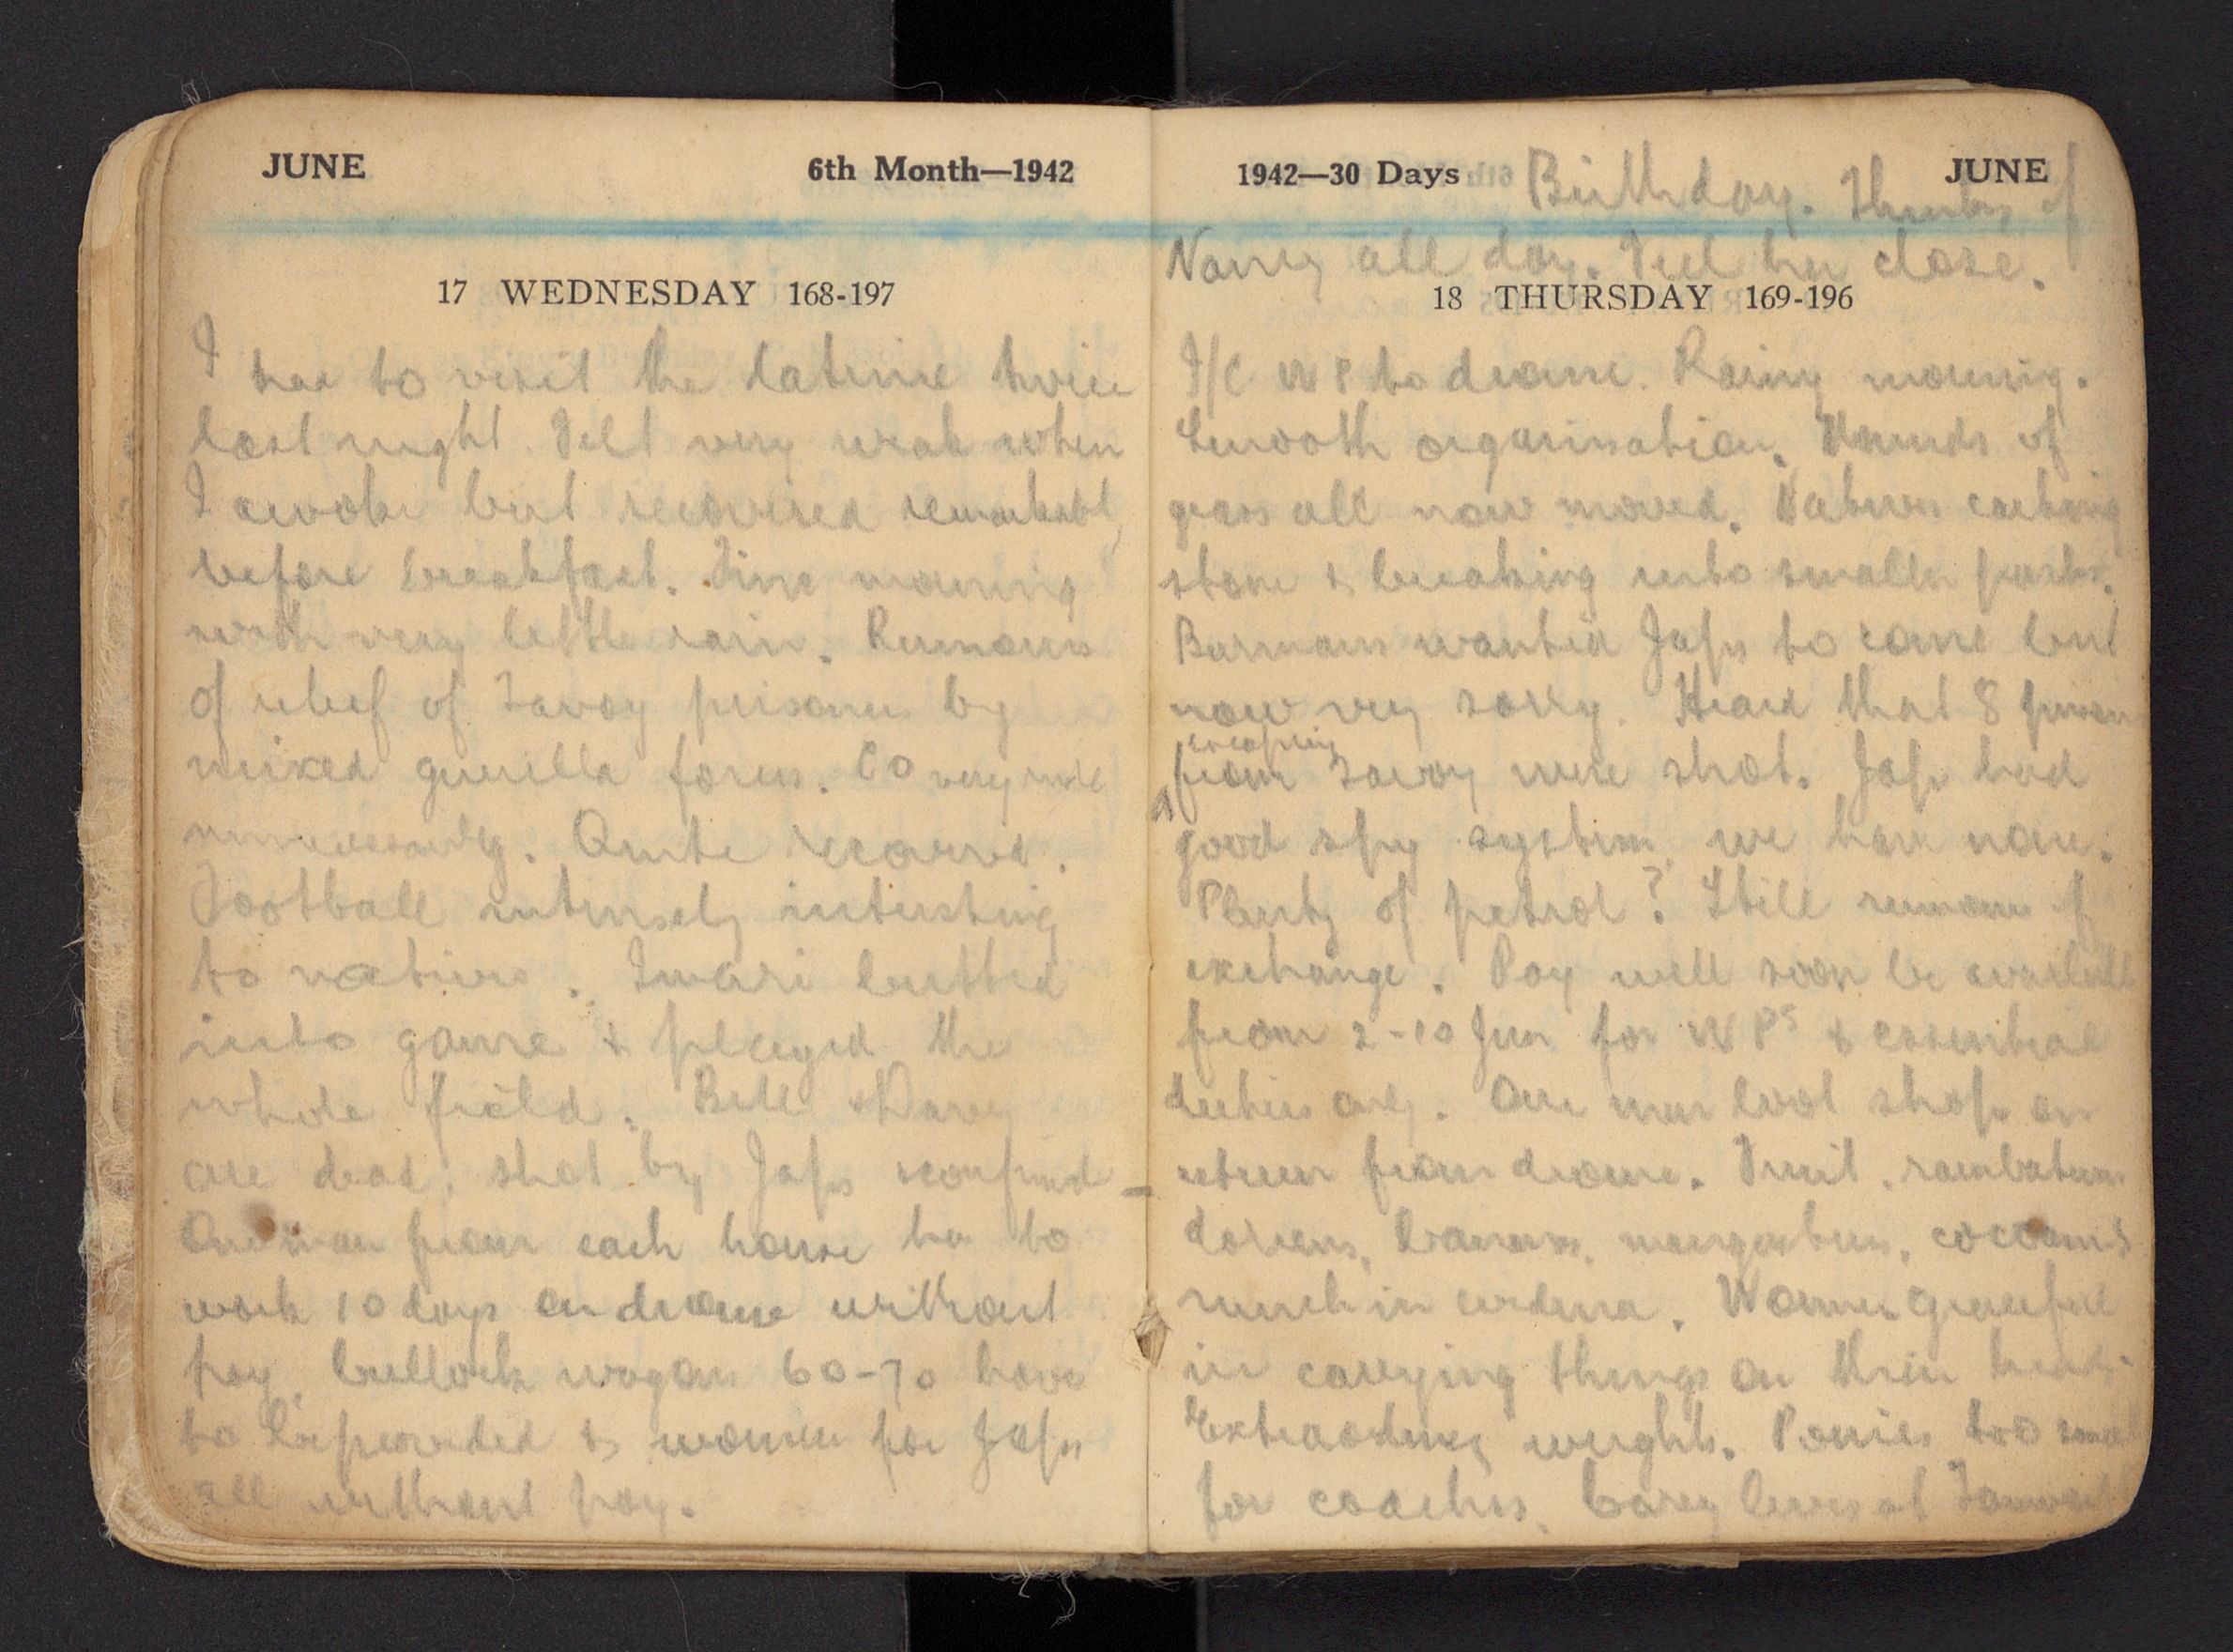 JUNE 6th Month—1942
17 WEDNESDAY 168-197
I had to visit the latrine twice
last night. Felt very weak when
I awoke but recovered remarkably
before breakfast. Fine morning
with very little rain. Rumours
of relief of Tavoy prisoners by
mixed guerilla forces. CO very rude
unnecessarily. Quite recovered.
Football intensely interesting
to natives. Imari butted
into game & played the
whole field. Bell & Davey
are dead, shot by Japs confirmed
One man from each house has to
work 10 days on drome without
pay, bullock wagons 60-70 have
to be provided & women for Japs
all without pay.
1942—30 Days JUNE
Birthday. Thinking of
Nancy all day. Feel her close.
18 THURSDAY 169-196
I/C WP to drome. Rainy morning.
Smooth organisation. Mounds of
grass all now moved. Natives carting
stone & breaking into smaller parts.
Burmans wanted Japs to come but
now very sorry. Heard that 8
escaping
from Tavoy were shot. Jap had
a good spy system, we have none.
Plenty of petrol? Still rumours of
exchange. Pay will soon be available
from 2-10 Jun for WPs & essential
duties only. Our men loot shop on
return from drome. Fruit, rambutans
dorians, bananas, mangosteens, coconuts
much in evidence. Women graceful
in carrying things on their heads.
Extraordinary weights. Ponies too small
for coaches. Carey lives at